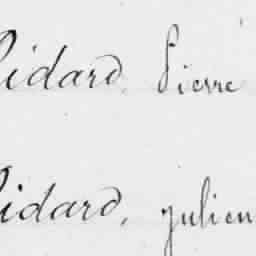 Pidard, Pierre
Pidard, julien